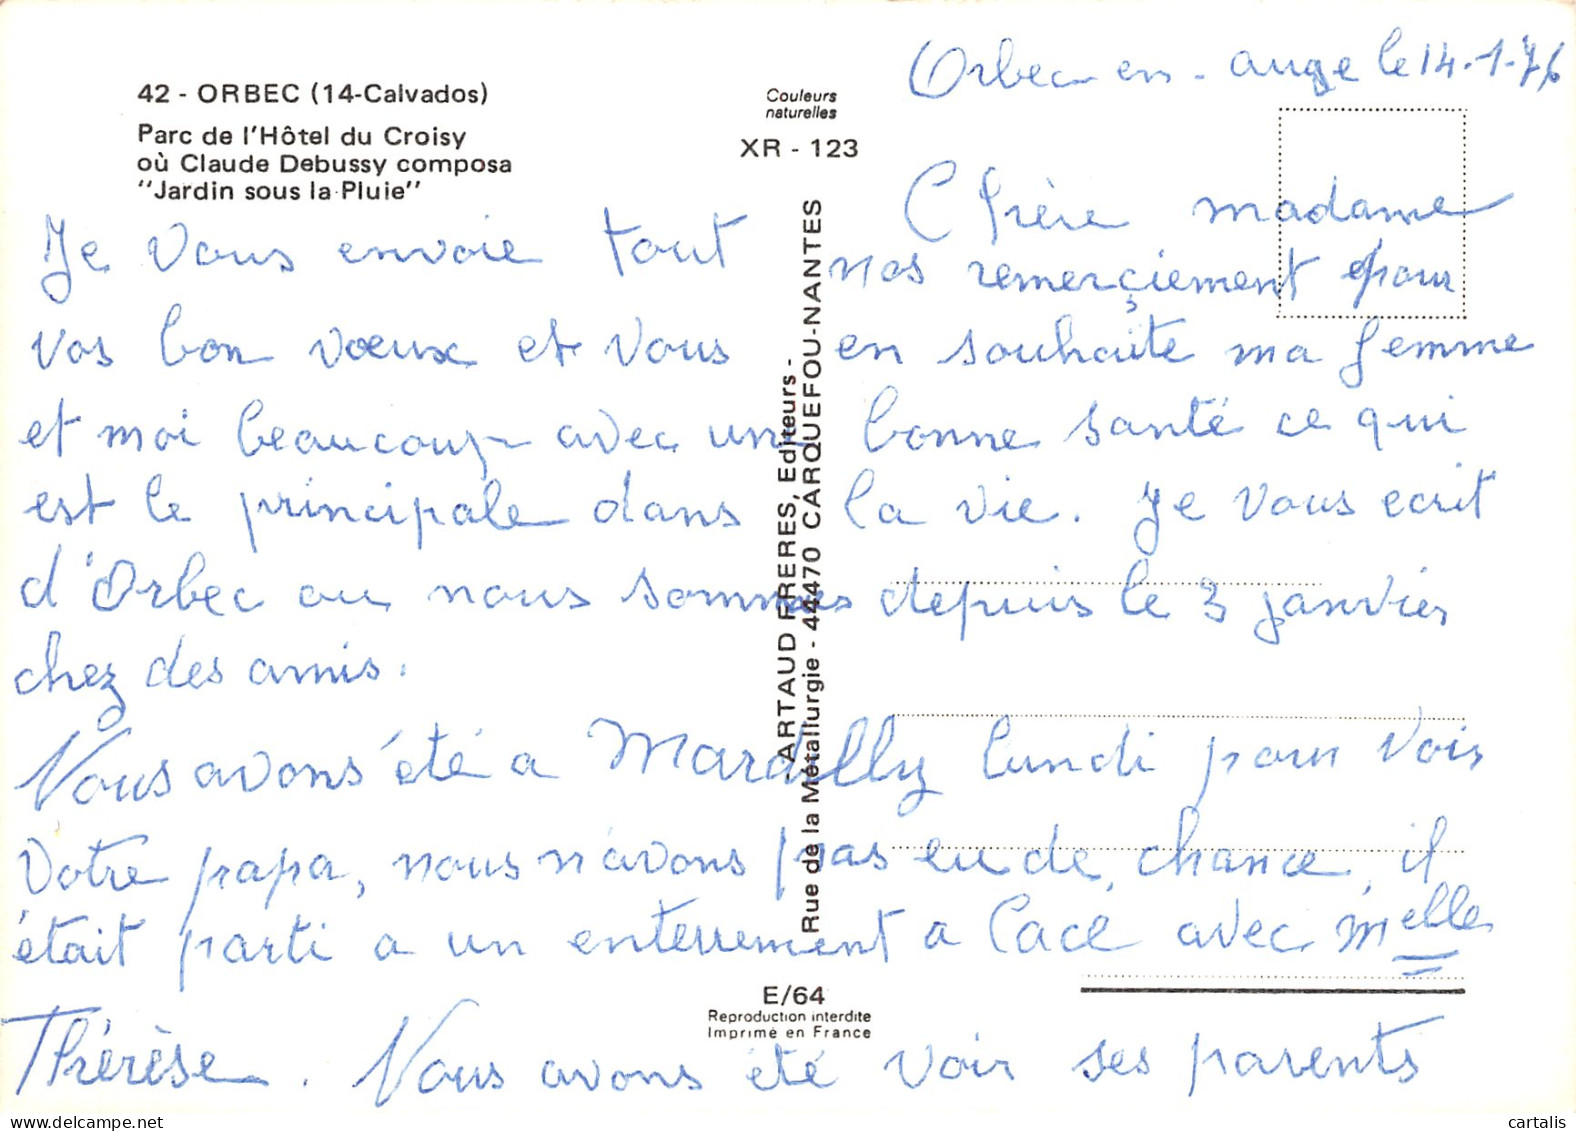 Orbec-en-auge le 14-1-76
42 - ORBEC (14-Calvados)
Parc de l'Hôtel du Croisy
où Claude Debussy composa
"Jardin sous la Pluie"
Couleurs
naturelles
XR - 123
Chère madame
Je vous envoie tout nos remerçiement pour
vos bon vœux et vous en souhaite ma femme
et moi beaucoup avec une bonne santé ce qui
est le principale dans la vie. Je vous ecrit
d'Orbec ou nous sommes depuis le 3 janvier
chez des amis.
Nous avons été a Mardilly lundi pour voir
votre papa, nous n'avons pas eu de chance, il
était parti a un enterrement a Cacé avec Melle
Thérèse. Nous avons été voir ses parents
ARTAUD FRERES, Editeurs -
Rue de la Métallurgie - 44470 CARQUEFOU-NANTES
E/64
Reproduction interdite
Imprimé en France
cartalis